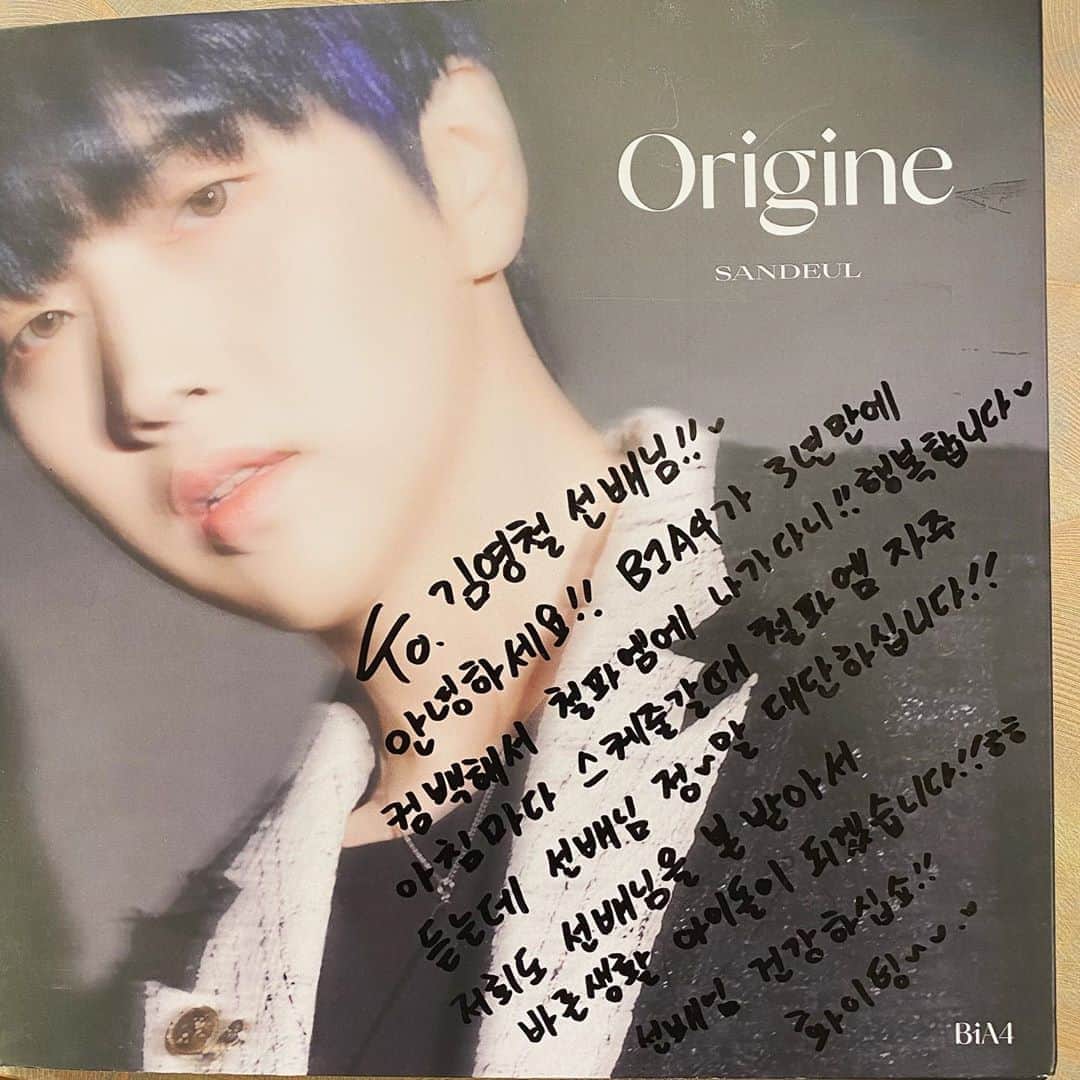 Origine
SANDEUL
To. 김영철 선배님!!♥
안녕하세요!! B1A4가 3년만에
컴백해서 철파엠에 나가다니!! 행복합니다♥
아침마다 스케줄갈때 철파엠 자주
듣는데 선배님 정~말 대단하십니다!!
저희도 선배님을 본 받아서
바른생활 아이돌이 되겠습니다!!ㅎㅎ
선배님 건강하십쇼!!
화이팅~♥
B1A4